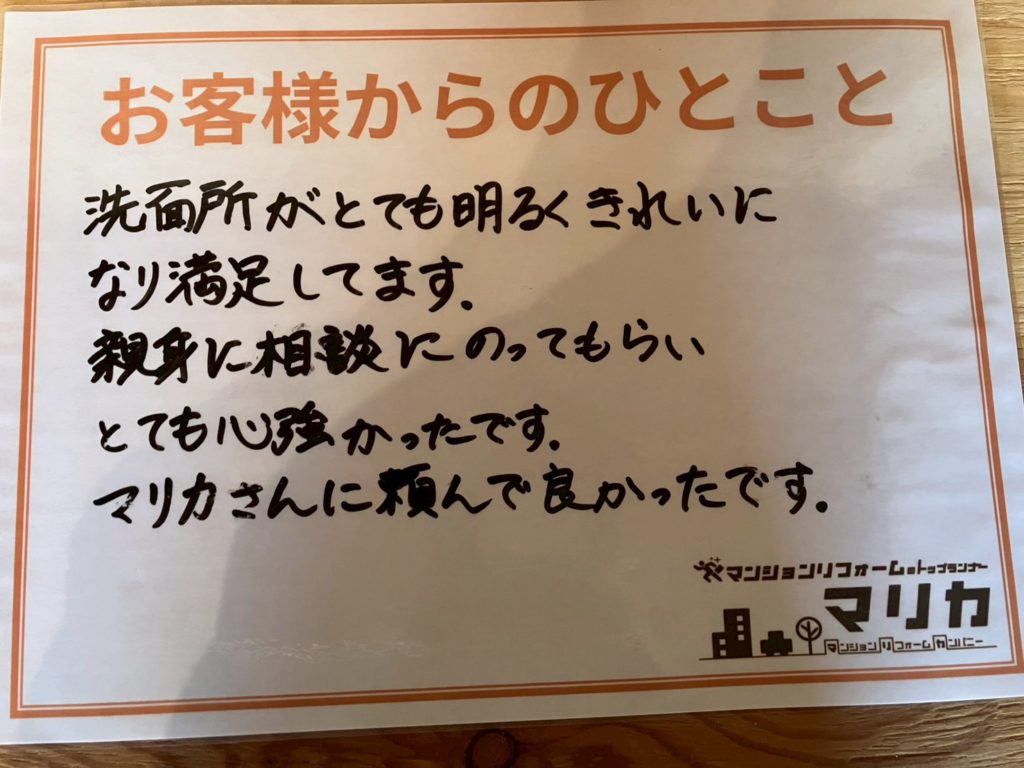 お客様からのひとこと
洗面所がとても明るくきれいに
なり満足してます.
親身に相談にのってもらい
とても心強かったです.
マリカさんに頼んで良かったです.
マンションリフォームのトップランナー
マリカ
マンションリフォームカンパニー